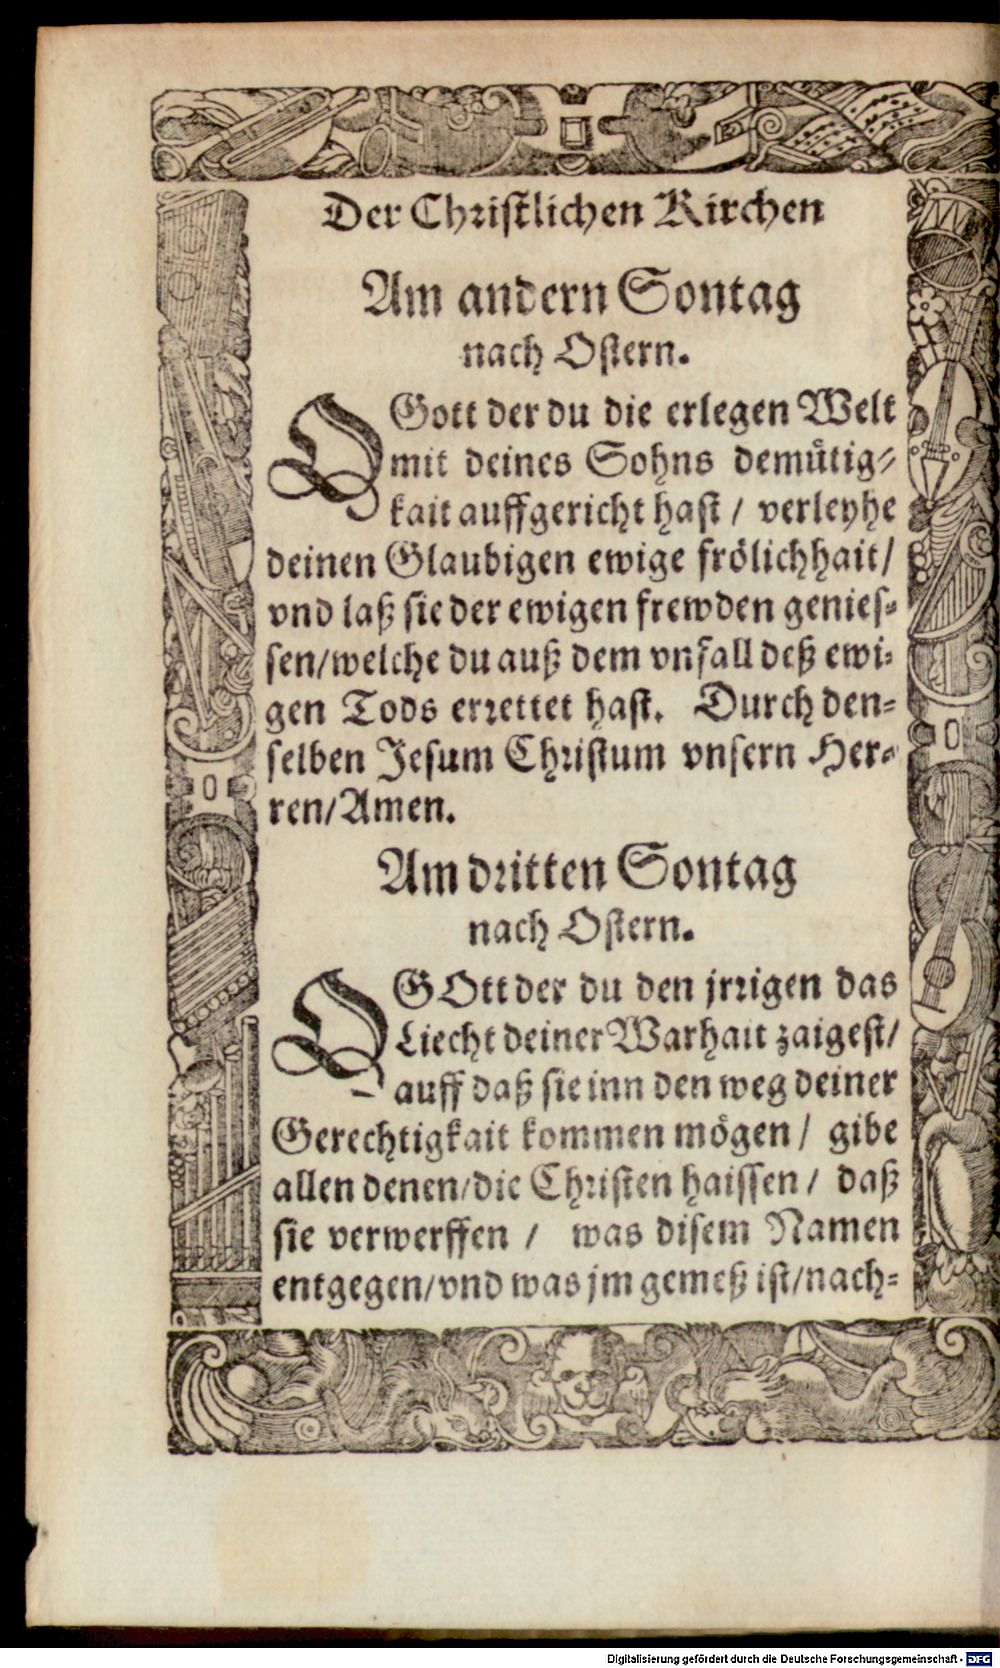 Der Christlichen Kirchen
Am andern Sontag
nach Ostern.
O Gott der du die erlegen Welt
mit deines Sohns demütig-
kait auffgericht hast / verleyhe
deinen Glaubigen ewige frölichhait/
vnd laß sie der ewigen frewden genies-
sen/welche du auß dem vnfall deß ewi-
gen Tods errettet hast. Durch den-
selben Jesum Christum vnsern Her-
ren/Amen.
Am dritten Sontag
nach Ostern.
O GOtt der du den jrrigen das
Liecht deiner Warhait zaigest/
auff daß sie inn den weg deiner
Gerechtigkait kommen mögen / gibe
allen denen/die Christen haissen / daß
sie verwerffen / was disem Namen
entgegen/vnd was jm gemeß ist/nach-
Digitalisierung gefördert durch die Deutsche Forschungsgemeinschaft - DFG